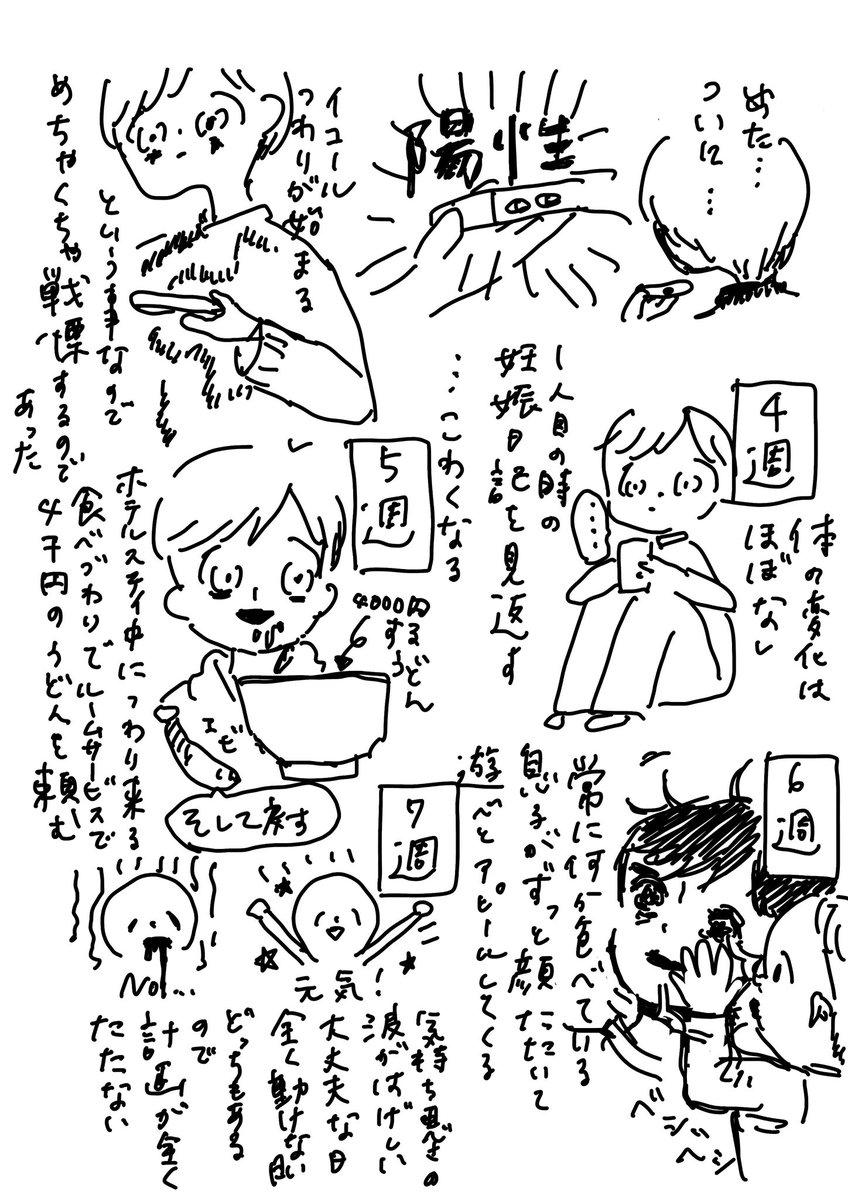 めた…
ついに…
陽性
イコール
つわりが始まる
という事なので
めちゃくちゃ戦慄するので
あった
4週
体の変化は
ほぼなし
…
1人目の時の
妊娠日記を見返す
…こわくなる
5週
4000円する
うどん
エビ
ホテルステイ中につわり来る
食べづわりでルームサービスで
4千円のうどんを頼む
そして戻す
6週
常に何か食べている
息子がずっと顔たたいて
遊べとアピールしてくる
ベシ
ベシ
7週
元気!
No!...
気持ち悪さの
波がはげしい
大丈夫な日
全く動けない日
どっちもある
ので
計画が全く
たたない